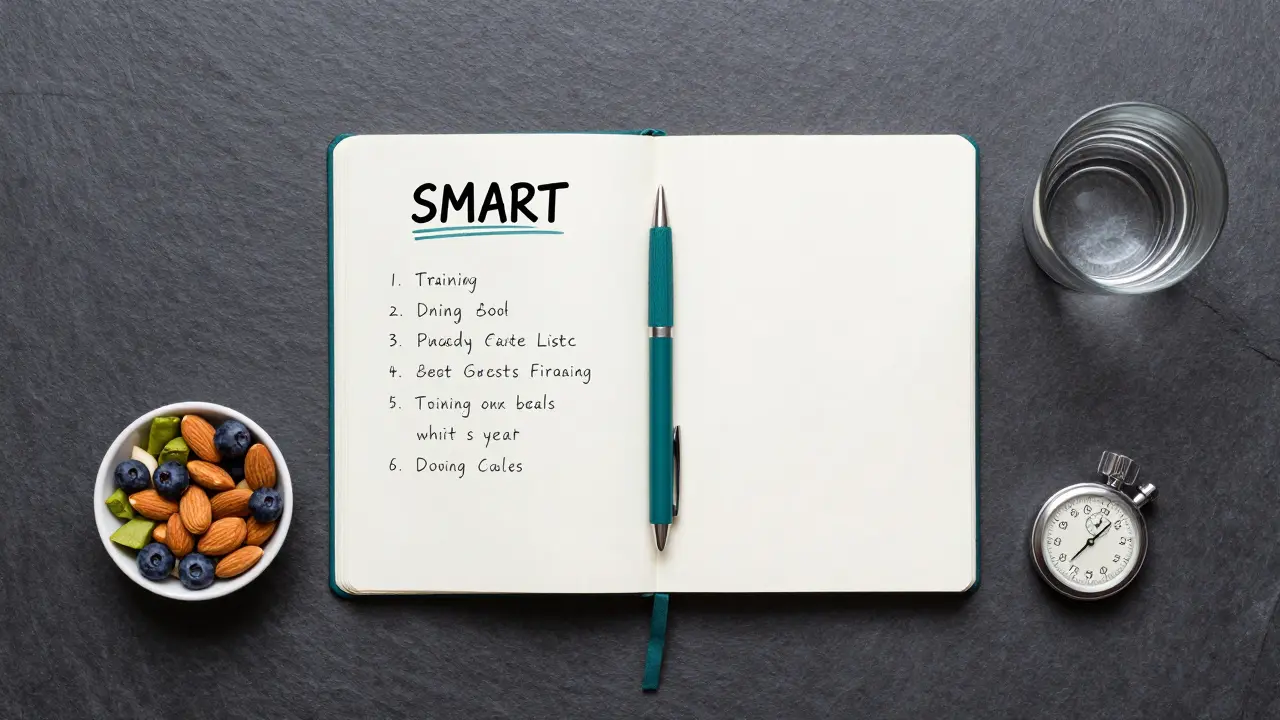 SMART
1. Training
2. Dning Bool
3. Puacdy Caste Listc
4. Beet Grests Firasing
5. Toining onx beals
whit s year
6. Doving Cales